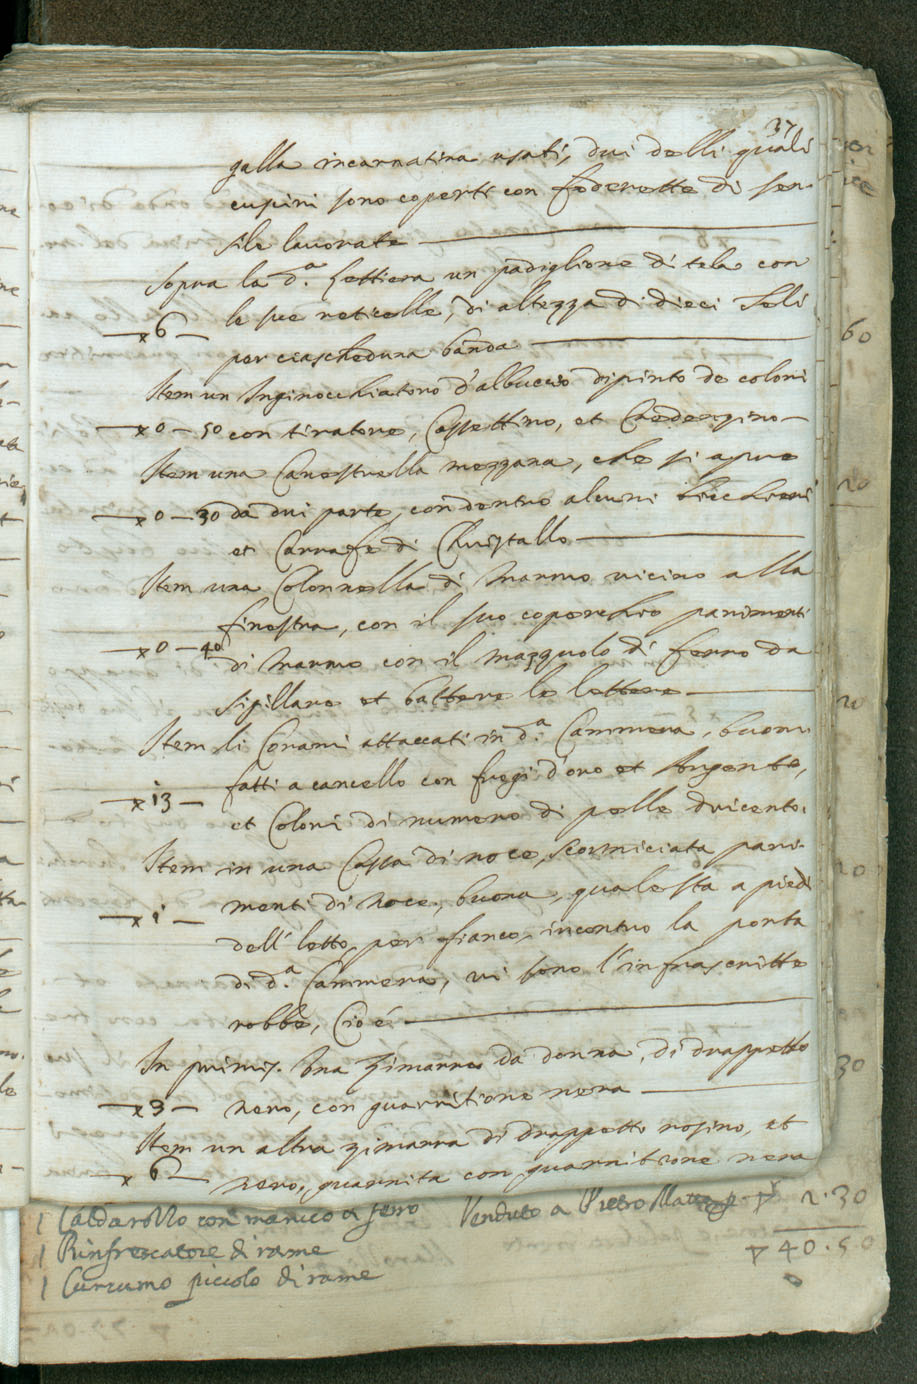 37
galla incarnatina usati, dui delli quali
cuscini sono coperti con foderette di sen-
sile lavorate
Sopra la d.ª Lettiera un padiglione di tela con
le sue reticelle, di altezza di dieci Teli
x 6
per ciascheduna banda
Item un Inginocchiatoro d'albuccio dipinto de colori
x 0 – 50 con tiratore, Cassettino, et Credenzino
Item una Canestrella mezzana, che si apre
x 0 – 30 da dui parte, con dentro alcuni bicchieri
et Carrafe di Christallo
Item una Colonnella di Marmo vicino alla
finestra, con il suo coperchio parimenti
x 0 – 40
di Marmo con il mazzuolo di ferro da
sigillare et battere le lettere
Item li Corami attaccati in d.ª Cammera, buoni
fatti a cancello con fregi d'oro et Argento,
x 13
et Colori di numero di pelle ducento.
Item in una Cassa di noce, scorniciata pari-
menti di Noce, buona, quale sta a piedi
x 1
dell' letto, per fianco, incontro la porta
di d.ª Cammera, vi sono l'infrascritte
robbe, Cioé
In primis. Una Zimarra da donna, di drappetto
x 3 nero, con guarnitione nera
Item un altra zimarra di drappetto rosino, et
x 6
nero, guarnita con guarnitione nera
60
20
20
20
30
1 Caldarozzo con manico di ferro Venduto a Pietro 2.30
1 Rinfrescatore di rame 40.50
1 Cucumo piccolo di rame